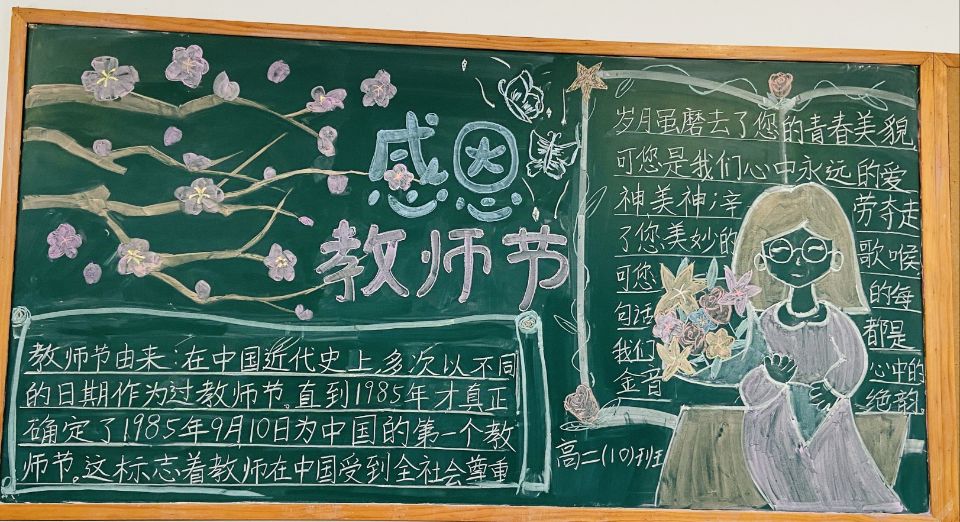 感恩
教师节
教师节由来:在中国近代史上,多次以不同
的日期作为过教师节。直到1985年才真正
确定了1985年9月10日为中国的第一个教
师节。这标志着教师在中国受到全社会尊重
岁月虽磨去了您的青春美貌,
可您是我们心中永远的爱
神美神;辛劳夺走
了您美妙的歌喉
可您的每
句话都是
我们心中的
金音绝韵
高二(10)班